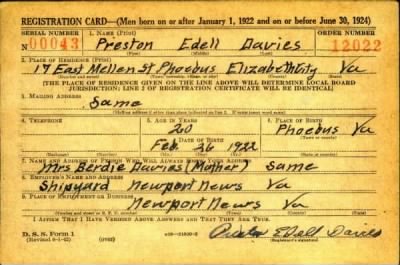 REGISTRATION CARD—(Men born on or after January 1, 1922 and on or before June 30, 1924)
SERIAL NUMBER 1. NAME (Print) ORDER NUMBER
N 00043 Preston Edell Davies 12022
(First) (Middle) (Last)
2. PLACE OF RESIDENCE (Print)
19 East Mellen St Phoebus Elizabeth City Va
[THE PLACE OF RESIDENCE GIVEN ON THE LINE ABOVE WILL DETERMINE LOCAL BOARD
JURISDICTION; LINE 2 OF REGISTRATION CERTIFICATE WILL BE IDENTICAL]
3. MAILING ADDRESS
Same
[Mailing address if other than place indicated on line 2. If same insert word same]
4. TELEPHONE 5. AGE IN YEARS 6. PLACE OF BIRTH
20 Phoebus Va
DATE OF BIRTH
Feb 26 1922
7. NAME AND ADDRESS OF PERSON WHO WILL ALWAYS KNOW YOUR ADDRESS
Mrs Berdie Davies (Mother) Same
8. EMPLOYER'S NAME AND ADDRESS
Shipyard Newport News Va
9. PLACE OF EMPLOYMENT OR BUSINESS
Newport News Va
I AFFIRM THAT I HAVE VERIFIED ABOVE ANSWERS AND THAT THEY ARE TRUE.
D. S. S. Form 1 Preston Edell Davies
(over) (Registrant's signature)